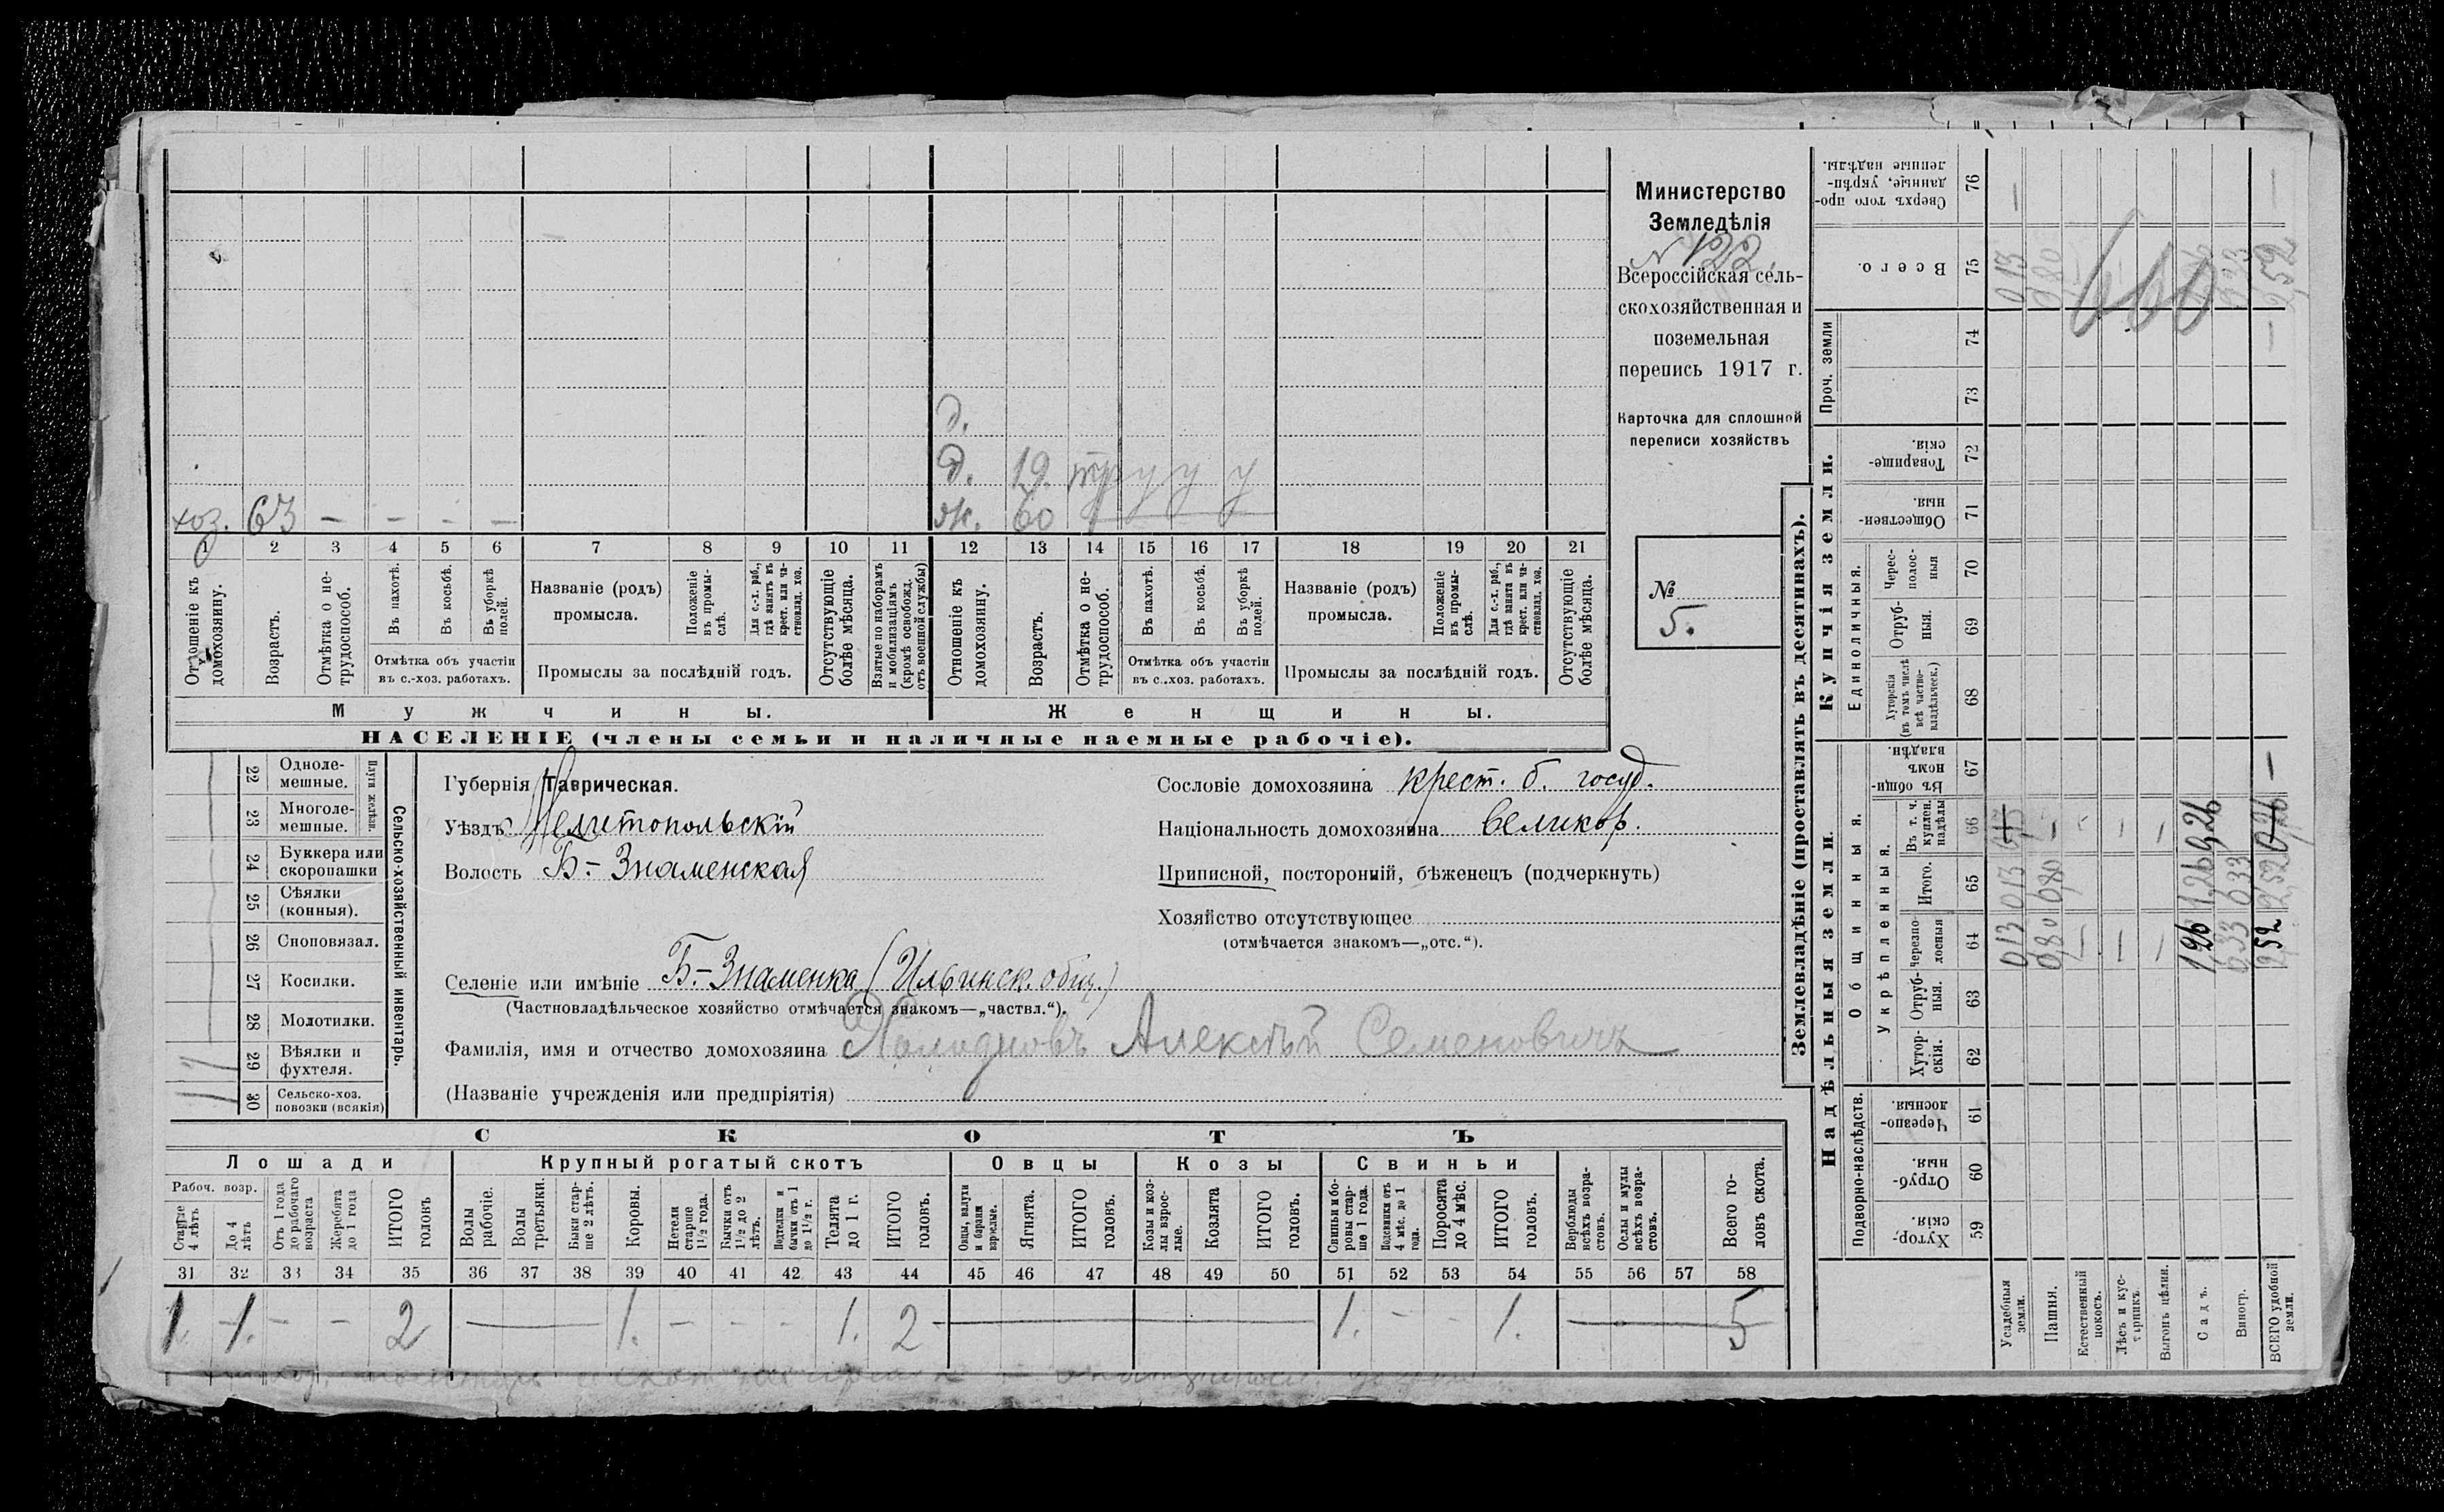 Министерство
Земледѣлія
N 122.
Всероссійская сель-
скохозяйственная и
поземельная
перепись 1917 г.
Карточка для сплошной
переписи хозяйствъ
№
5.
д.
д. 19. у у у
хоз. 63 – – – – ж. 60
1 2 3 4 5 6 7 8 9 10 11 12 13 14 15 16 17 18 19 20 21
Отношеніе къ домохозяину.
Возрастъ.
Отмѣтка о не-трудоспособ.
Въ пахотѣ.
Въ косьбѣ.
Въ уборкѣ полей.
Отмѣтка объ участіи
въ с.-хоз. работахъ.
Названіе (родъ)
промысла.
Положеніе въ промы-слѣ.
Для с.-х. раб., гдѣ занятъ въ крест. или ча-стновлад. хоз.
Промыслы за послѣдній годъ.
Отсутствующіе болѣе мѣсяца.
Взятые по наборамъ и мобилизаціямъ (кромѣ освобожд. отъ военной службы)
Отношеніе къ домохозяину.
Возрастъ.
Отмѣтка о не-трудоспособ.
Въ пахотѣ.
Въ косьбѣ.
Въ уборкѣ полей.
Отмѣтка объ участіи
въ с.-хоз. работахъ.
Названіе (родъ)
промысла.
Положеніе въ промы-слѣ.
Для с.-х. раб., гдѣ занята въ крест. или ча-стновлад. хоз.
Промыслы за послѣдній годъ.
Отсутствующіе болѣе мѣсяца.
Мужчины. Женщины.
НАСЕЛЕНІЕ (члены семьи и наличные наемные рабочіе).
Сельско-хозяйственный инвентарь.
Плуги желѣзн.
22 Одноле-мешные.
23 Многоле-мешные.
24 Буккера или скоропашки
25 Сѣялки (конныя).
26 Сноповязал.
27 Косилки.
28 Молотилки.
29 Вѣялки и фухтеля. 1
30 Сельско-хоз. повозки (всякія) 1
Губернія Таврическая.
Уѣздъ Мелитопольскій
Волость Б.-Знаменская
Селеніе или имѣніе Б.-Знаменка (Ильинск. общ.)
(Частновладѣльческое хозяйство отмѣчается знакомъ—„частвл.“).
Фамилія, имя и отчество домохозяина Алексѣй Семеновичъ
(Названіе учрежденія или предпріятія)
Сословіе домохозяина крест. б. госуд.
Національность домохозяина великор.
Приписной, посторонній, бѣженецъ (подчеркнуть)
Хозяйство отсутствующее
(отмѣчается знакомъ—„отс.“).
СКОТЪ
Лошади Крупный рогатый скотъ Овцы Козы Свиньи
Рабоч. возр.
Старше 4 лѣтъ
До 4 лѣтъ
Отъ 1 года до рабочаго возраста
Жеребята до 1 года
ИТОГО головъ
Волы рабочіе.
Волы третьяки.
Быки стар-ше 2 лѣтъ.
Коровы.
Нетели старше 1½ года.
Бычки отъ 1½ до 2 лѣтъ.
Подтелки и бычки отъ 1 до 1½ г.
Телята до 1 г.
ИТОГО головъ.
Овцы, валухи и бараны взрослые.
Ягнята.
ИТОГО головъ.
Козы и коз-лы взрос-лые.
Козлята
ИТОГО головъ.
Свиньи и бо-ровы стар-ше 1 года.
Подсвинки отъ 4 мѣс. до 1 года.
Поросята до 4 мѣс.
ИТОГО головъ.
Верблюды всѣхъ возра-стовъ.
Ослы и мулы всѣхъ возра-стовъ.
Всего го-ловъ скота.
31 32 33 34 35 36 37 38 39 40 41 42 43 44 45 46 47 48 49 50 51 52 53 54 55 56 57 58
1. 1. – – 2 — 1. – – – 1. 2 — — 1. – – 1. — 5
Землевладѣніе (проставлять въ десятинахъ).
Надѣльныя земли.
Купчія земли.
Проч. земли
Подворно-наслѣдств.
Общинныя.
Укрѣпленныя.
Единоличныя.
Хутор-скія. 59
Отруб-ныя. 60
Черезпо-лосныя. 61
Хутор-скія. 62
Отруб-ныя. 63
Черезпо-лосныя 64
Итого. 65
Въ т. ч. куплен. надѣлы 66
Въ общи-номъ владѣн. 67
Хуторскія (въ томъ числѣ всѣ частно-владѣльческ.) 68
Отруб-ныя. 69
Черес-полос-ныя 70
Обществен-ныя 71
Товарище-скія. 72
73
74
Всего. 75
Сверхъ того про-данные, укрѣп-ленные надѣлы. 76
Усадебныя земли. 013 013 013
Пашня. 080 080 080
Естественный покосъ.
Лѣсъ и кус-тарникъ.
Выгонъ цѣлин.
Садъ. 1,26 1,26 0,26
Виногр. 0,33 0,33 0,33
ВСЕГО удобной земли. 2,52 2,52 0,26 – 2,52
660